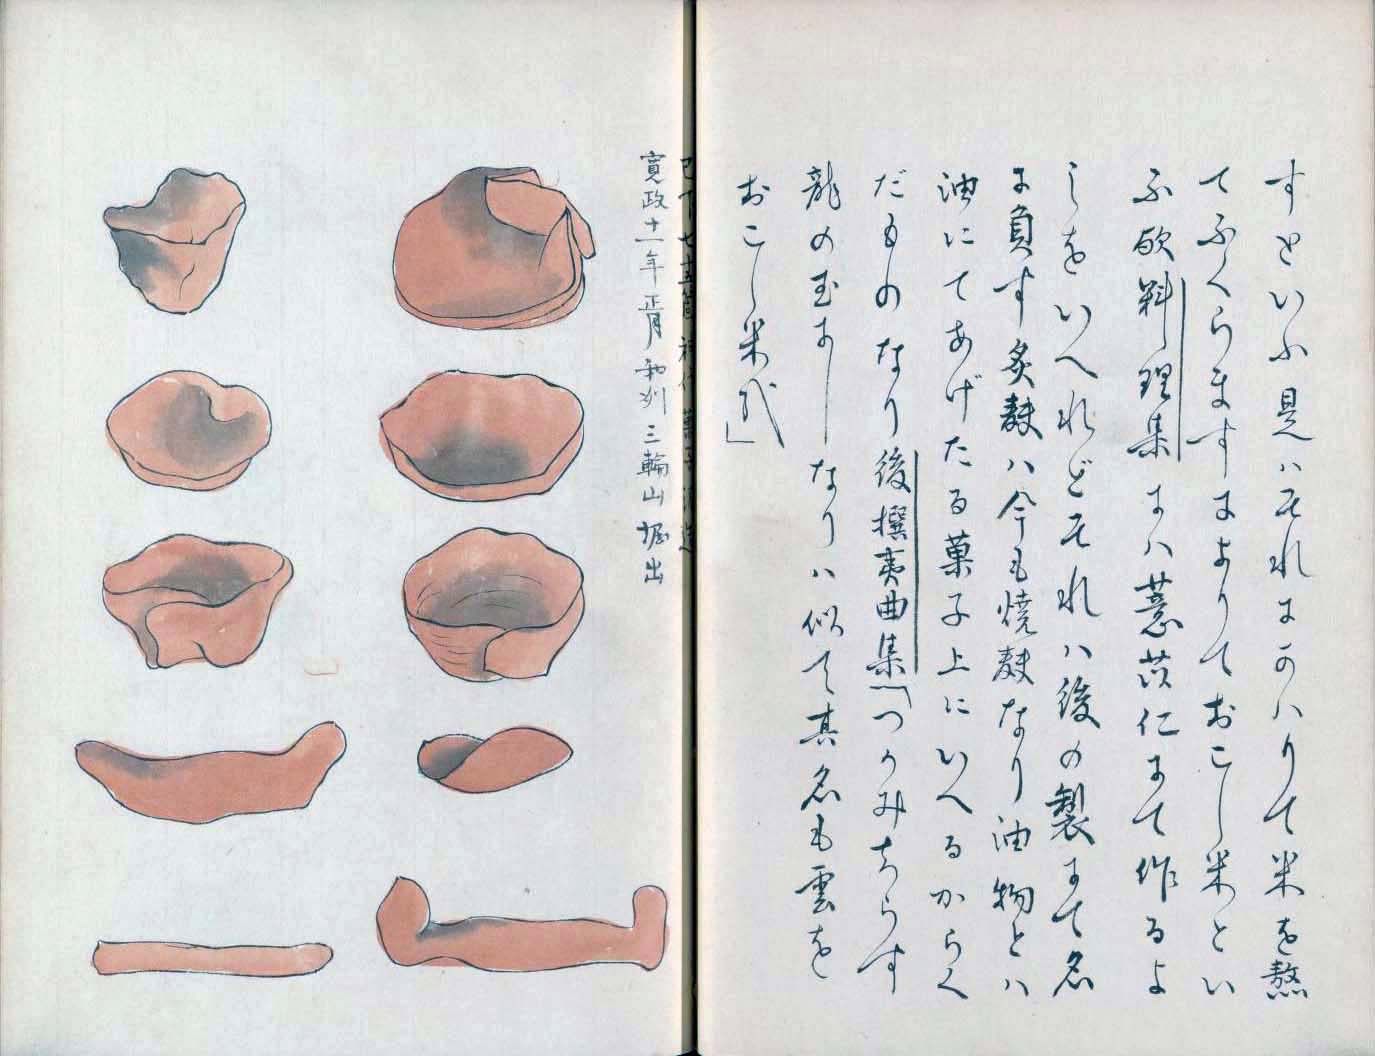 すといふ是ハそれにかハりて米を熬
てふくらますによりておこし米とい
ふ歟料理集にハ薏苡仁にて作るよ
しをいへれどそれハ後の製にて名
に負す炙麩ハ今も焼麩なり油物とハ
油にてあげたる菓子上にいへるからく
だものなり後撰夷曲集「つかみちらす
龍の玉にしなりハ似て其名も雲を
おこし米哉」
已下七十五箇神供菓子
寛政十一年 正月 和州 三輪山 堀出